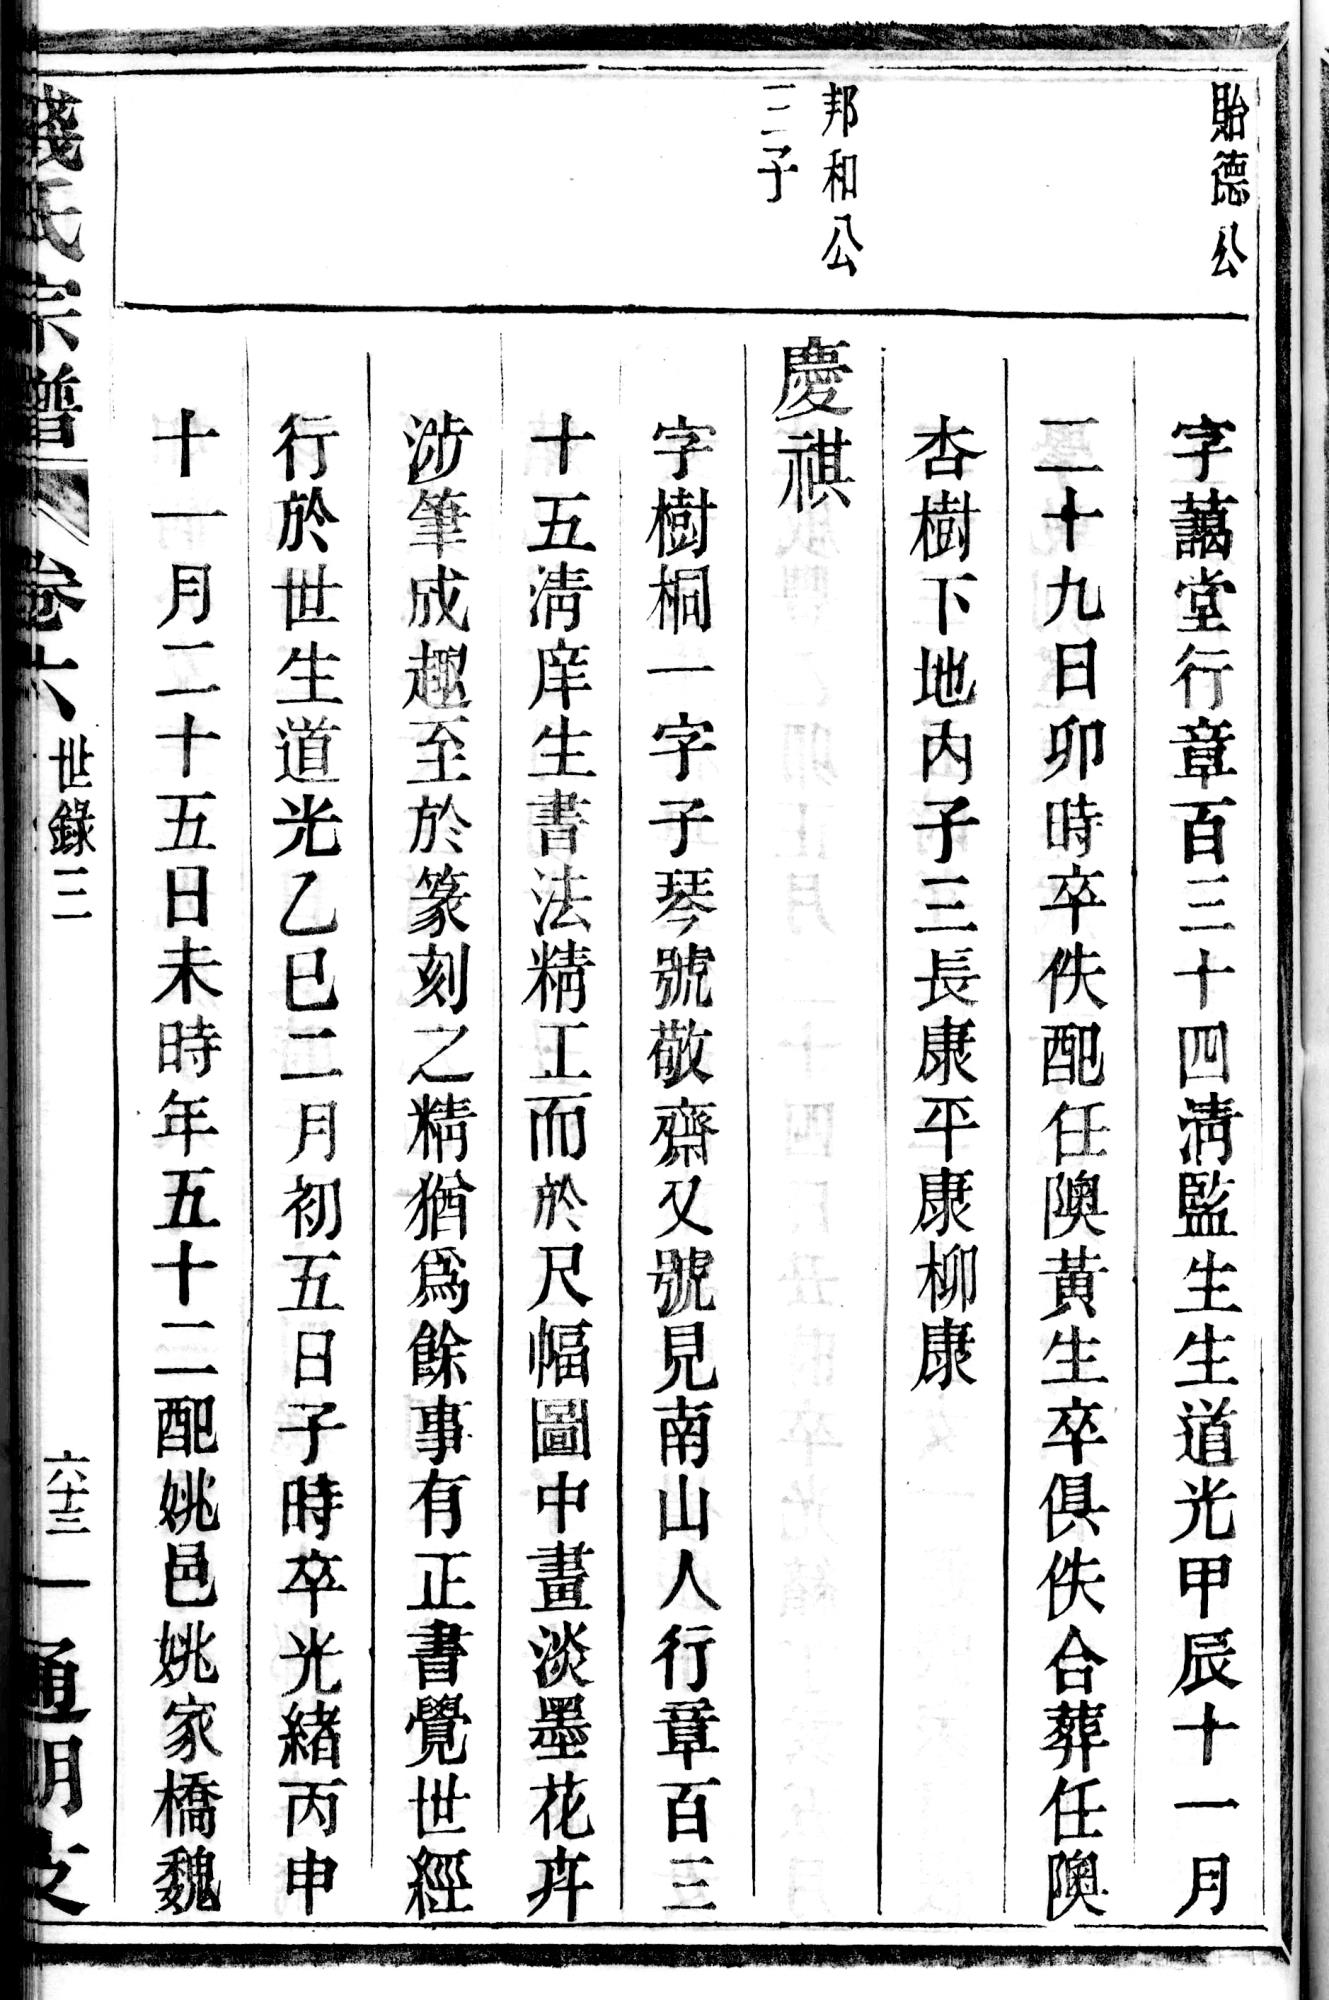 貽德公
字藹堂行章百三十四淸監生生道光甲辰十一月
二十九日卯時卒佚配任隩黃生卒俱佚合葬任隩
杏樹下地內子三長康平康柳康
邦和公
三子
慶祺
字樹桐一字子琴號敬齋又號見南山人行章百三
十五淸庠生書法精工而於尺幅圖中畫淡墨花卉
涉筆成趣至於篆刻之精猶爲餘事有正書覺世經
行於世生道光乙巳二月初五日子時卒光緒丙申
十一月二十五日未時年五十二配姚邑姚家橋魏
氏宗譜
卷六
世錄三
六十三
通明支